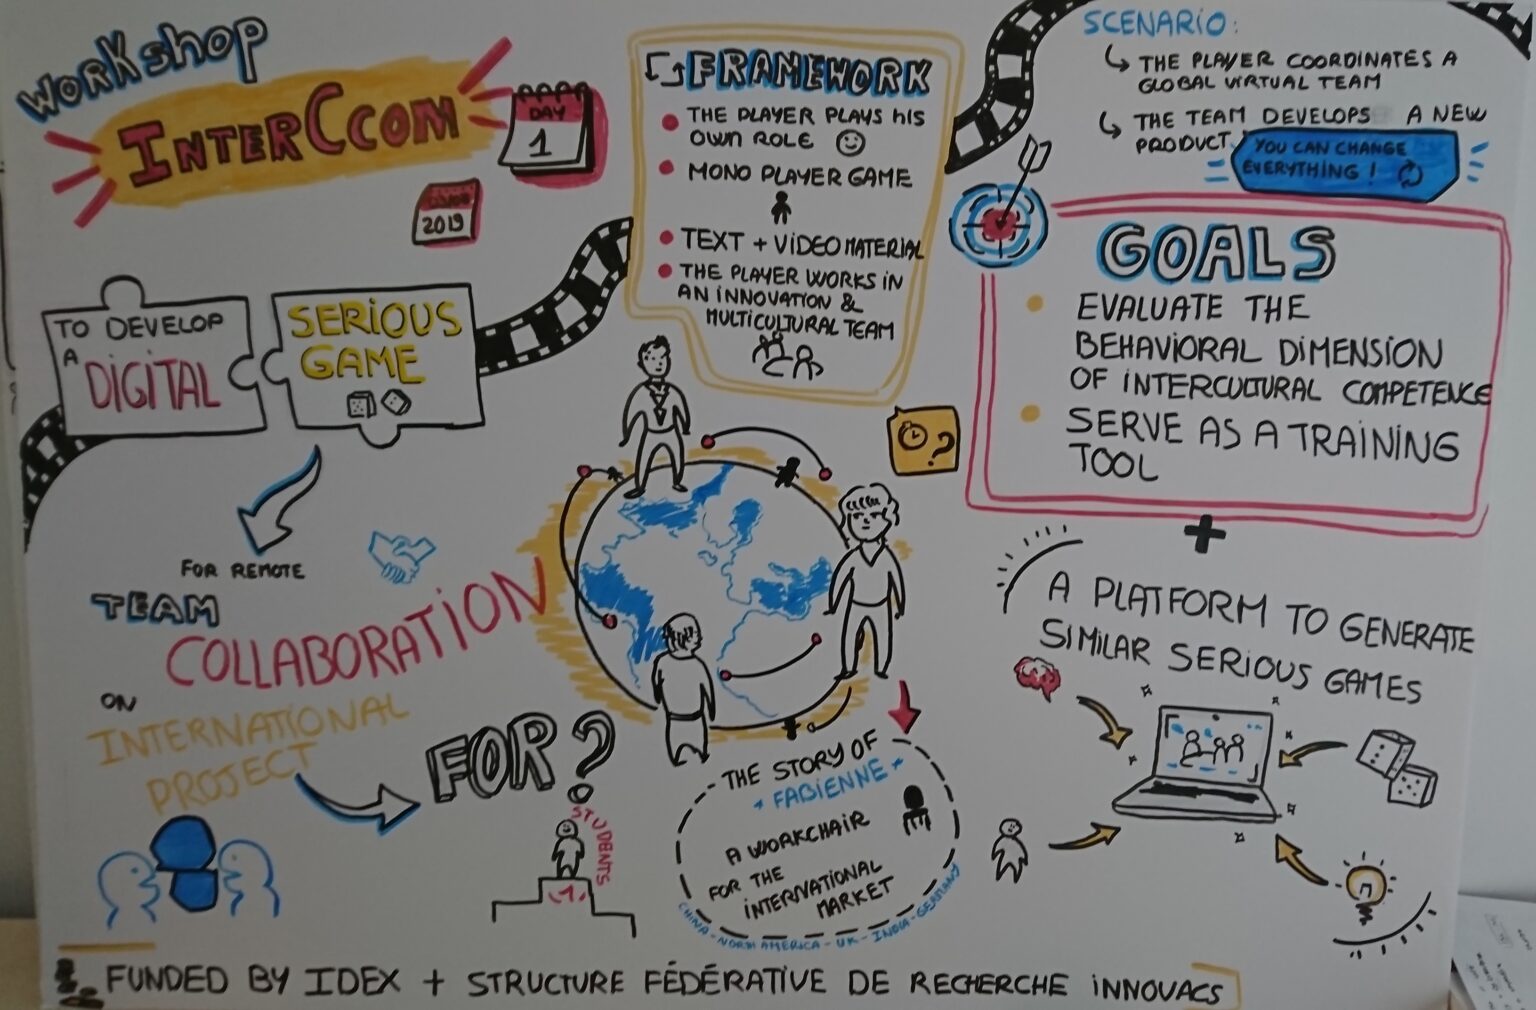 WORKSHOP
INTERCCOM
DAY
1
2019
TO DEVELOP
A
DIGITAL
SERIOUS
GAME
FOR REMOTE
TEAM
COLLABORATION
ON
INTERNATIONAL
PROJECT
FOR?
STUDENTS
1
FRAMEWORK
THE PLAYER PLAYS HIS
OWN ROLE
MONO PLAYER GAME
TEXT + VIDEO MATERIAL
THE PLAYER WORKS IN
AN INNOVATION &
MULTICULTURAL TEAM
?
THE STORY OF
FABIENNE
A WORKCHAIR
FOR THE
INTERNATIONAL
MARKET
CHINA - NORTH AMERICA - UK - INDIA - GERMANY
SCENARIO:
THE PLAYER COORDINATES A
GLOBAL VIRTUAL TEAM
THE TEAM DEVELOPS A NEW
PRODUCT
YOU CAN CHANGE
EVERYTHING !
GOALS
EVALUATE THE
BEHAVIORAL DIMENSION
OF INTERCULTURAL COMPETENCE
SERVE AS A TRAINING
TOOL
+
A PLATFORM TO GENERATE
SIMILAR SERIOUS GAMES
FUNDED BY IDEX + STRUCTURE FÉDÉRATIVE DE RECHERCHE INNOVACS